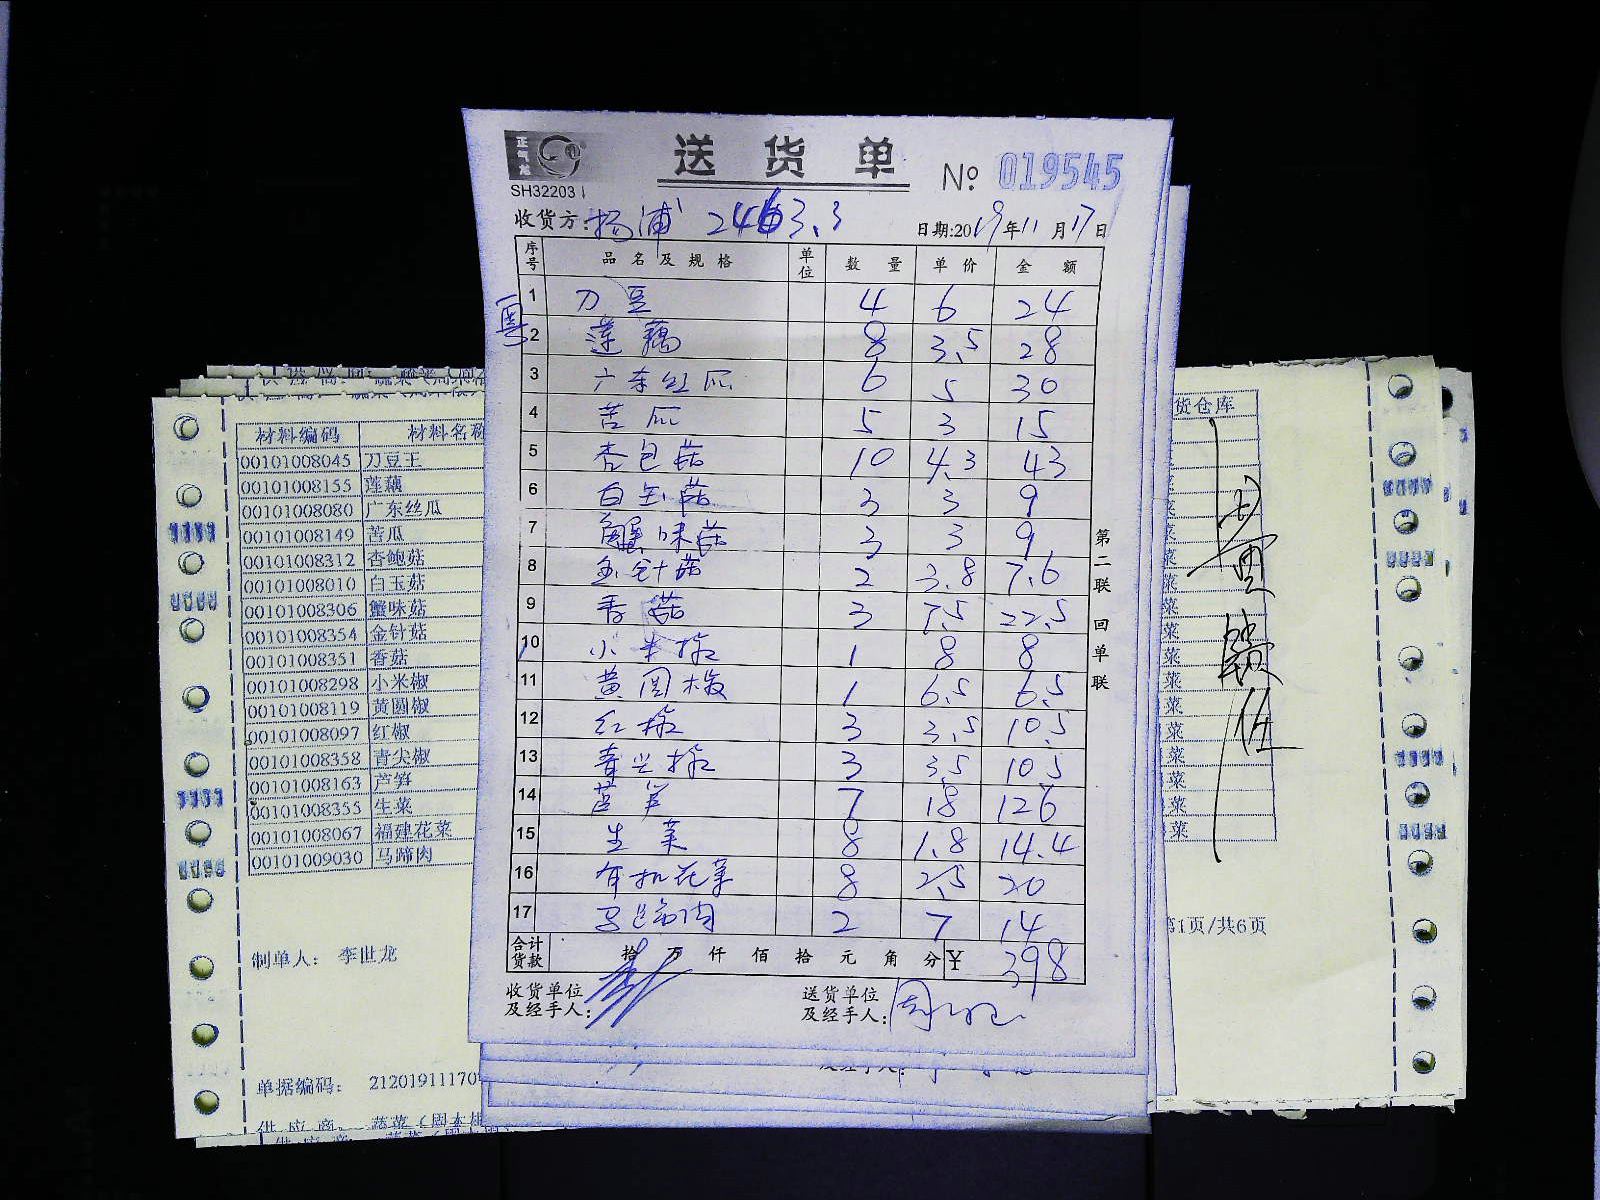 正气龙
送货单
SH32203
№ 019545
收货方: 杨浦 2463.3 日期:2019年11月17日
序号 品名及规格 单位 数量 单价 金额
粤
1 刀豆 4 6 24
2 莲藕 8 3.5 28
3 广东丝瓜 6 5 30
4 苦瓜 5 3 15
5 杏包菇 10 4.3 43
6 白玉菇 3 3 9
7 蟹味菇 3 3 9
8 金针菇 2 3.8 7.6
9 香菇 3 7.5 22.5
10 小米椒 1 8 8
11 黄圆椒 1 6.5 6.5
12 红椒 3 3.5 10.5
13 青尖椒 3 3.5 10.5
14 芦笋 7 18 126
15 生菜 8 1.8 14.4
16 有机花菜 8 2.5 20
17 马蹄肉 2 7 14
合计货款 拾万仟佰拾元角分 ¥ 398
收货单位及经手人:
送货单位及经手人:
第二联 回单联
材料编码 材料名称
00101008045 刀豆王
00101008155 莲藕
00101008080 广东丝瓜
00101008149 苦瓜
00101008312 杏鲍菇
00101008010 白玉菇
00101008306 蟹味菇
00101008354 金针菇
00101008351 香菇
00101008298 小米椒
00101008119 黄圆椒
00101008097 红椒
00101008358 青尖椒
00101008163 芦笋
00101008355 生菜
00101008067 福建花菜
00101009030 马蹄肉
制单人: 李世龙
单据编码: 21201911170
货仓库
菜
菜
菜
菜
菜
菜
菜
菜
菜
菜
菜
菜
第1页/共6页